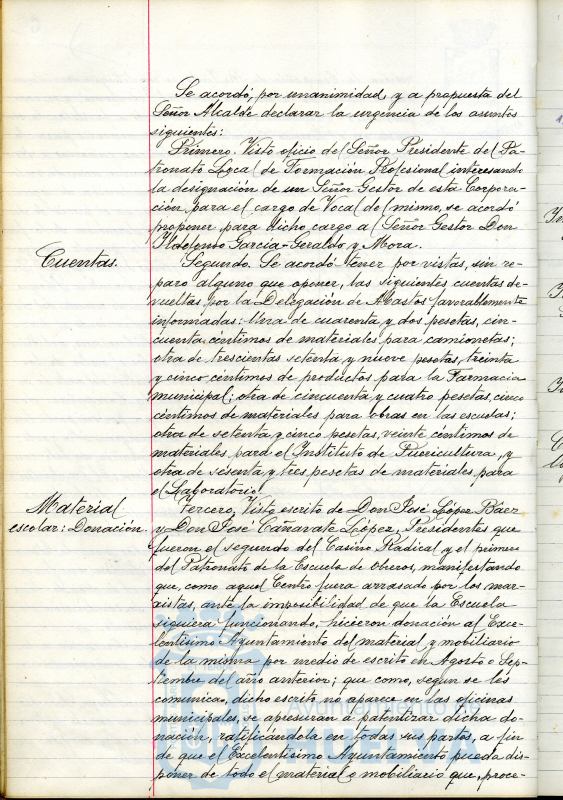 Se acordó, por unanimidad y a propuesta del
Señor Alcalde declarar la urgencia de los asuntos
siguientes:
Primero. Visto oficio del Señor Presidente del Pa-
tronato Local de Formación Profesional interesando
la designación de un Señor Gestor de esta Corpora-
ción para el cargo de Vocal del mismo, se acordó
proponer para dicho cargo al Señor Gestor Don
Ildefonso Garcia-Geraldo y Mora.
Cuentas.
Segundo. Se acordó tener por vistas, sin re-
paro alguno que oponer, las siguientes cuentas de-
vueltas por la Delegación de Abastos favorablemente
informadas: Una de cuarenta y dos pesetas, cin-
cuenta céntimos de materiales para camionetas;
otra de trescientas setenta y nueve pesetas, treinta
y cinco céntimos de productos para la Farmacia
municipal; otra de cincuenta y cuatro pesetas, cinco
céntimos de materiales para obras en las escuelas;
otra de setenta y cinco pesetas, veinte céntimos de
materiales para el Instituto de Puericultura, y
otra de sesenta y tres pesetas de materiales para
el Laboratorio.
Material
escolar: Donación.
Tercero, Visto escrito de Don José López Báez
y Don José Cañavate López, Presidentes que
fueron el segundo del Casino Radical y el primero
del Patronato de la Escuela de Obreros, manifestando
que, como aquel Centro fuera arrasado por los mar-
xistas, ante la imposibilidad de que la Escuela
siguiera funcionando, hicieron donación al Exce-
lentísimo Ayuntamiento del material y mobiliario
de la misma por medio de escrito en Agosto o Sep-
tiembre del año anterior; que como, segun se les
comunica, dicho escrito no aparece en las oficinas
municipales, se apresuran a patentizar dicha do-
nación, ratificándola en todas sus partes, a fin
de que el Excelentísimo Ayuntamiento pueda dis-
poner de todo el material o mobiliario que, proce-
Ayuntamiento de
HUELVA